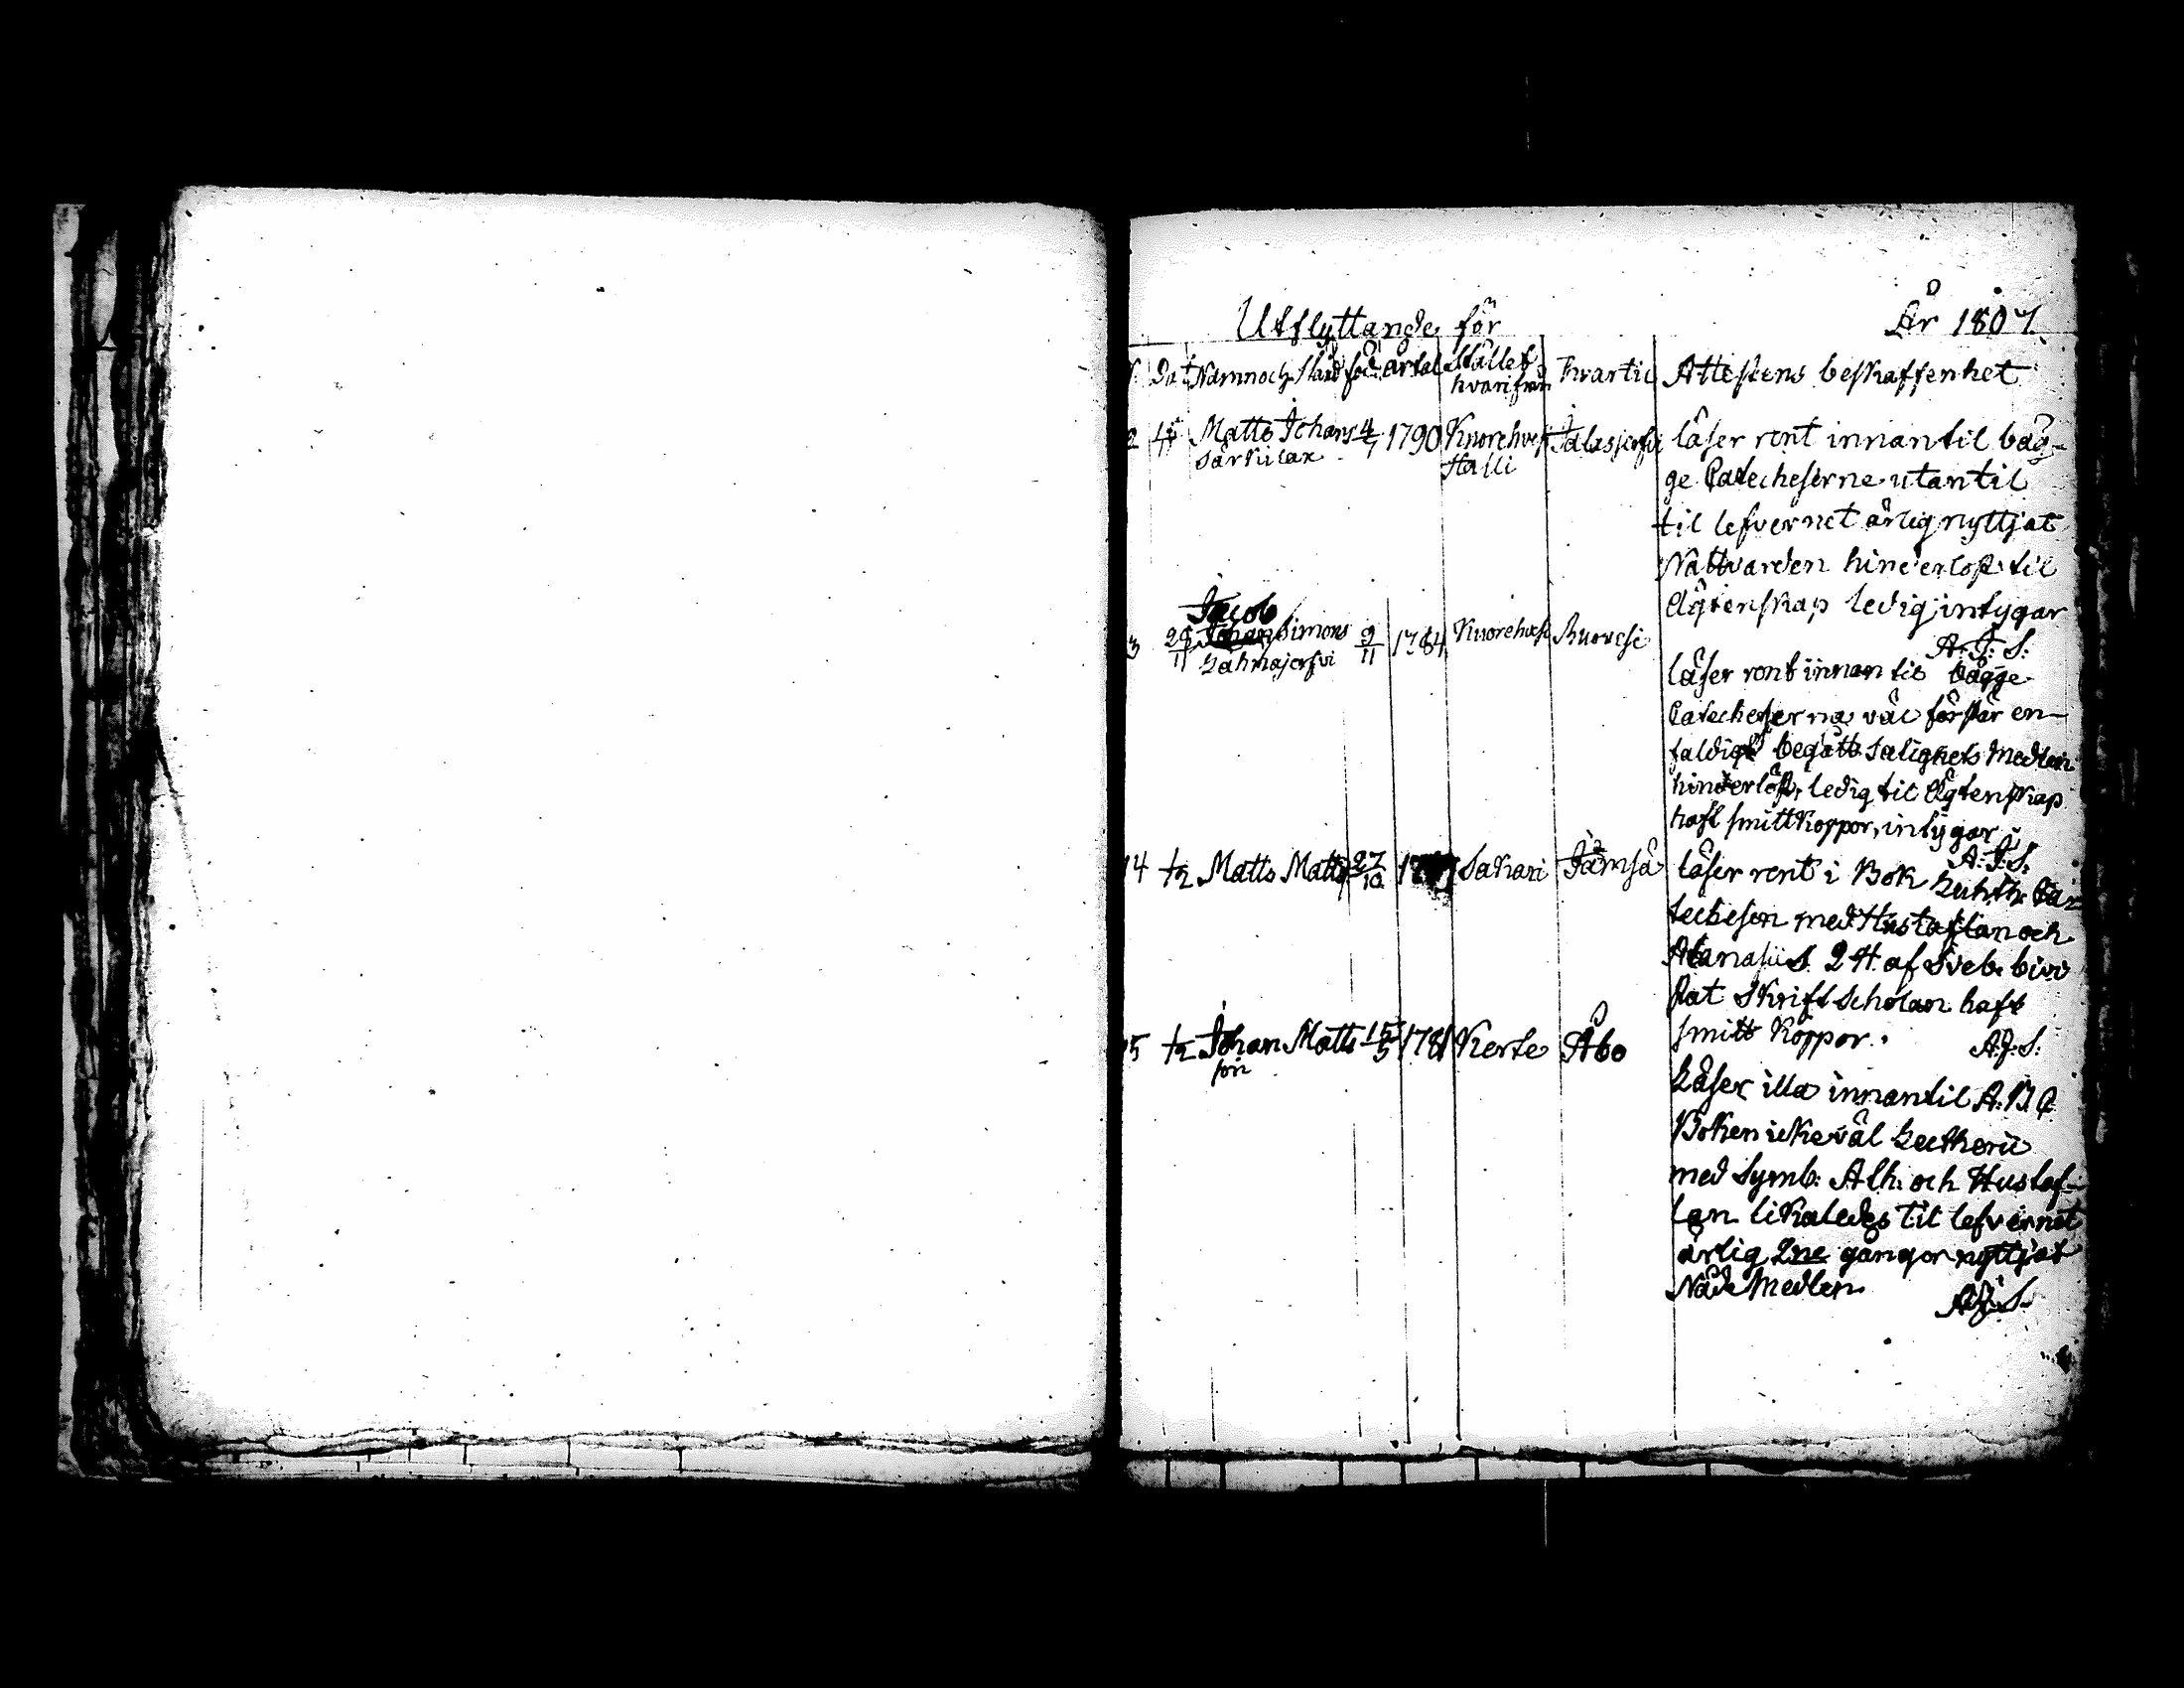 Utflyttande för År 1807.
N. Dat Namn och Stånd föd: årtal Stället hvarifrån hvartil Attestens beskaffenhet
2 Matts Johans 4/7 1790 Kuorehvesi Jalasjerfvi läser rent innantil båg-
Särkilax Halli
ge Catecheserne utantil
til lefvernet ärlig nyttjat
Nattvarden hinderlöst til
Ägtenskap ledig, intygar
A. J. S:
Jacob
3 29/11 Johan Simons 9/11 1784 Kuorehvesi Ruovesi
Lahnajerfvi
läser rent innan til bägge
Catecheserna väl förstår en-
faldigt begått Salighets Medlen
hinderlöst, ledig til Ägtenskap
haft smittkoppor, intygar
A: J: S:
14 1/12 Matts Matts 27/10 Sahari Jämsä läser rent i Bok Luth: Ca-
techesen med Hustaflan och
Atanasii S. 2 H. af Sveb. bivi
stat Skriftscholan haft
smitt Koppor. A: J: S:
15 1/12 Johan Matts 15/5 1781 Kerte Åbo
son
Läser illa innantil A. B. C
Boken icke väl Lutheri
med Symb: Ath: och Hustaf-
lan likaledes til lefvernet
ärlig 2ne gånger nyttjat
Nåde Medlen
A: J: S: